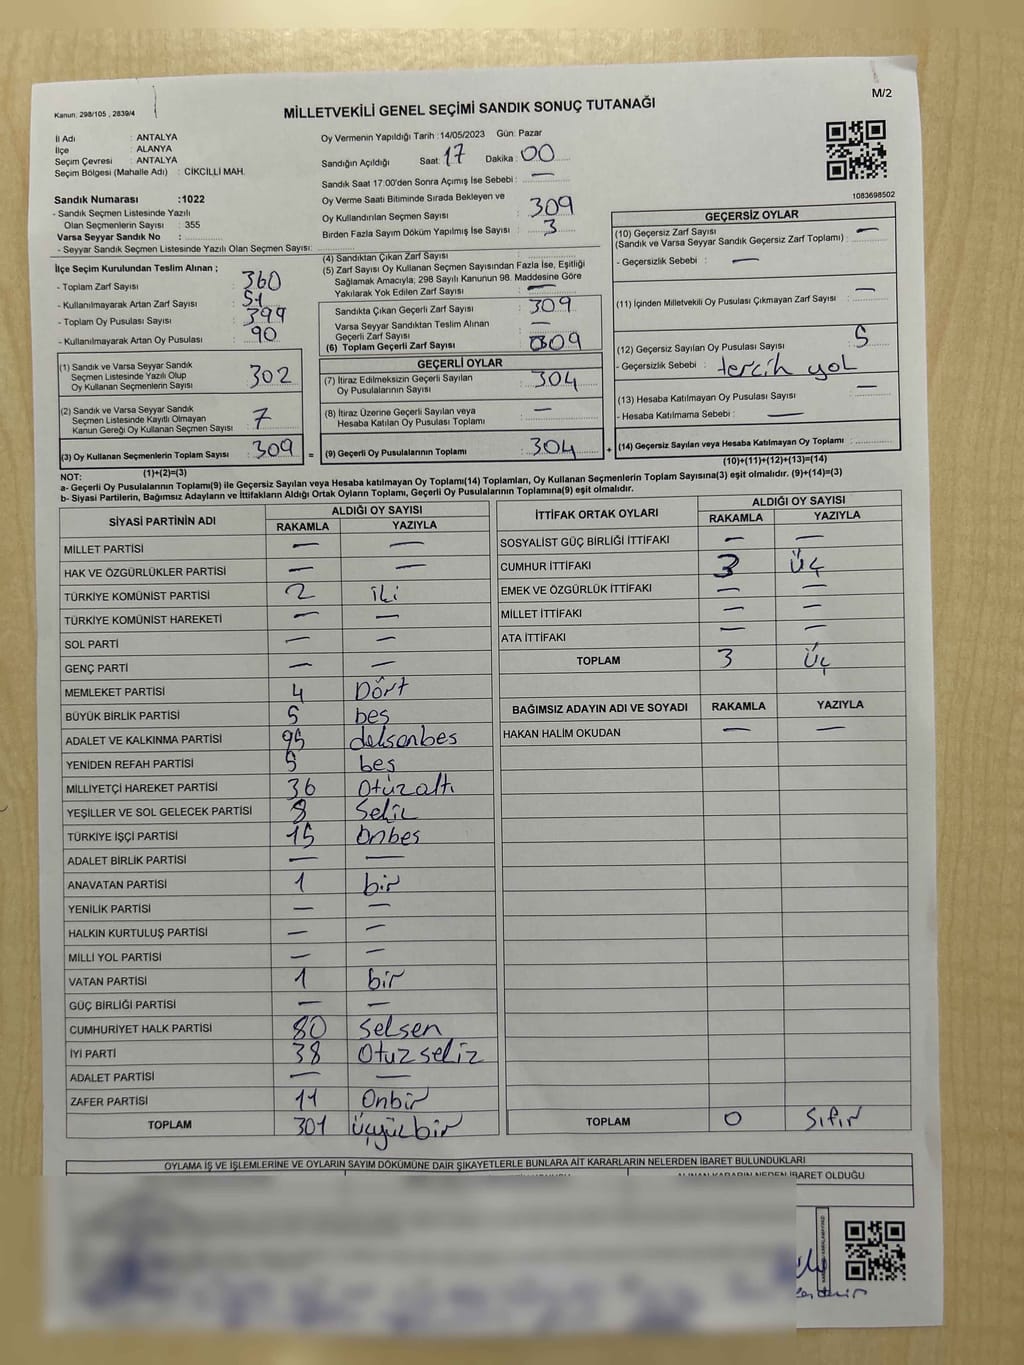 M/2
Kanun, 298/105 , 2839/4
MİLLETVEKİLİ GENEL SEÇİMİ SANDIK SONUÇ TUTANAĞI
İl Adı : ANTALYA
İlçe : ALANYA
Seçim Çevresi : ANTALYA
Seçim Bölgesi (Mahalle Adı) : CİKCİLLİ MAH.
Sandık Numarası :1022
- Sandık Seçmen Listesinde Yazılı
Olan Seçmenlerin Sayısı : 355
Varsa Seyyar Sandık No :
- Seyyar Sandık Seçmen Listesinde Yazılı Olan Seçmen Sayısı:
Oy Vermenin Yapıldığı Tarih :14/05/2023 Gün: Pazar
Sandığın Açıldığı Saat: 17 Dakika : 00
Sandık Saat 17:00'den Sonra Açımış İse Sebebi : —
Oy Verme Saati Bitiminde Sırada Bekleyen ve
Oy Kullandırılan Seçmen Sayısı : 309
Birden Fazla Sayım Döküm Yapılmış İse Sayısı : 3
1083698502
İlçe Seçim Kurulundan Teslim Alınan ;
- Toplam Zarf Sayısı : 360
- Kullanılmayarak Artan Zarf Sayısı : 51
- Toplam Oy Pusulası Sayısı : 399
- Kullanılmayarak Artan Oy Pusulası : 90
(1) Sandık ve Varsa Seyyar Sandık
Seçmen Listesinde Yazılı Olup
Oy Kullanan Seçmenlerin Sayısı : 302
(2) Sandık ve Varsa Seyyar Sandık
Seçmen Listesinde Kayıtlı Olmayan
Kanun Gereği Oy Kullanan Seçmen Sayısı : 7
(3) Oy Kullanan Seçmenlerin Toplam Sayısı : 309
(1)+(2)=(3)
(4) Sandıktan Çıkan Zarf Sayısı :
(5) Zarf Sayısı Oy Kullanan Seçmen Sayısından Fazla İse, Eşitliği
Sağlamak Amacıyla; 298 Sayılı Kanunun 98. Maddesine Göre
Yakılarak Yok Edilen Zarf Sayısı : —
Sandıkta Çıkan Geçerli Zarf Sayısı : 309
Varsa Seyyar Sandıktan Teslim Alınan
Geçerli Zarf Sayısı : —
(6) Toplam Geçerli Zarf Sayısı : 309
GEÇERLİ OYLAR
(7) İtiraz Edilmeksizin Geçerli Sayılan
Oy Pusulalarının Sayısı : 304
(8) İtiraz Üzerine Geçerli Sayılan veya
Hesaba Katılan Oy Pusulası Toplamı : —
= (9) Geçerli Oy Pusulalarının Toplamı : 304
GEÇERSİZ OYLAR
(10) Geçersiz Zarf Sayısı
(Sandık ve Varsa Seyyar Sandık Geçersiz Zarf Toplamı) : —
- Geçersizlik Sebebi : —
(11) İçinden Milletvekili Oy Pusulası Çıkmayan Zarf Sayısı : —
(12) Geçersiz Sayılan Oy Pusulası Sayısı : 5
- Geçersizlik Sebebi : tercih yok
(13) Hesaba Katılmayan Oy Pusulası Sayısı : —
- Hesaba Katılmama Sebebi : —
+ (14) Geçersiz Sayılan veya Hesaba Katılmayan Oy Toplamı :
(10)+(11)+(12)+(13)=(14)
NOT:
a- Geçerli Oy Pusulalarının Toplamı(9) ile Geçersiz Sayılan veya Hesaba katılmayan Oy Toplamı(14) Toplamları, Oy Kullanan Seçmenlerin Toplam Sayısına(3) eşit olmalıdır. (9)+(14)=(3)
b- Siyasi Partilerin, Bağımsız Adayların ve İttifakların Aldığı Ortak Oyların Toplamı, Geçerli Oy Pusulalarının Toplamına(9) eşit olmalıdır.
SİYASİ PARTİNİN ADI ALDIĞI OY SAYISI
RAKAMLA YAZIYLA
MİLLET PARTİSİ — —
HAK VE ÖZGÜRLÜKLER PARTİSİ — —
TÜRKİYE KOMÜNİST PARTİSİ 2 iki
TÜRKİYE KOMÜNİST HAREKETİ — —
SOL PARTİ — —
GENÇ PARTİ — —
MEMLEKET PARTİSİ 4 Dört
BÜYÜK BİRLİK PARTİSİ 5 beş
ADALET VE KALKINMA PARTİSİ 95 doksanbeş
YENİDEN REFAH PARTİSİ 5 beş
MİLLİYETÇİ HAREKET PARTİSİ 36 Otuzaltı
YEŞİLLER VE SOL GELECEK PARTİSİ 8 Sekiz
TÜRKİYE İŞÇİ PARTİSİ 15 Onbeş
ADALET BİRLİK PARTİSİ — —
ANAVATAN PARTİSİ 1 bir
YENİLİK PARTİSİ — —
HALKIN KURTULUŞ PARTİSİ — —
MİLLİ YOL PARTİSİ — —
VATAN PARTİSİ 1 bir
GÜÇ BİRLİĞİ PARTİSİ — —
CUMHURİYET HALK PARTİSİ 80 Seksen
İYİ PARTİ 38 Otuzsekiz
ADALET PARTİSİ — —
ZAFER PARTİSİ 11 Onbir
TOPLAM 301 üçyüzbir
İTTİFAK ORTAK OYLARI ALDIĞI OY SAYISI
RAKAMLA YAZIYLA
SOSYALİST GÜÇ BİRLİĞİ İTTİFAKI — —
CUMHUR İTTİFAKI 3 üç
EMEK VE ÖZGÜRLÜK İTTİFAKI — —
MİLLET İTTİFAKI — —
ATA İTTİFAKI — —
TOPLAM 3 üç
BAĞIMSIZ ADAYIN ADI VE SOYADI RAKAMLA YAZIYLA
HAKAN HALİM OKUDAN — —
TOPLAM 0 Sıfır
OYLAMA İŞ VE İŞLEMLERİNE VE OYLARIN SAYIM DÖKÜMÜNE DAİR ŞİKAYETLERLE BUNLARA AİT KARARLARIN NELERDEN İBARET BULUNDUKLARI
ALINAN KARARIN NEDEN İBARET OLDUĞU